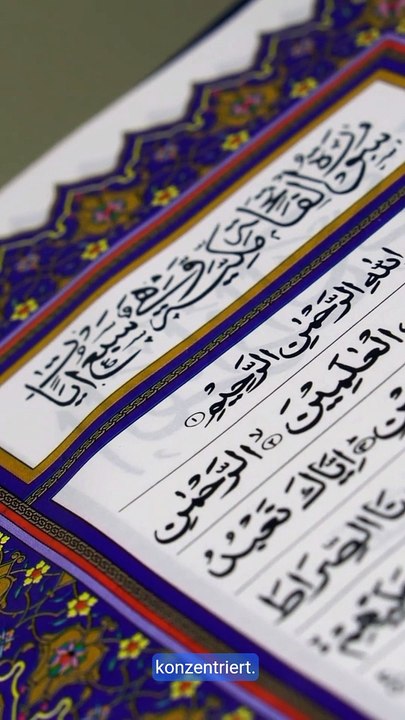 سُوْرَةُ الْفَاتِحَةِ مَكِّيَّةٌ وَّهِيَ سَبْعُ اٰيَاتٍ
اللهِ الرَّحْمٰنِ الرَّحِيْمِ ①
الْعٰلَمِيْنَ ② الرَّحْمٰنِ
اِيَّاكَ نَعْبُدُ
نَا الصِّرَاطَ
konzentriert.